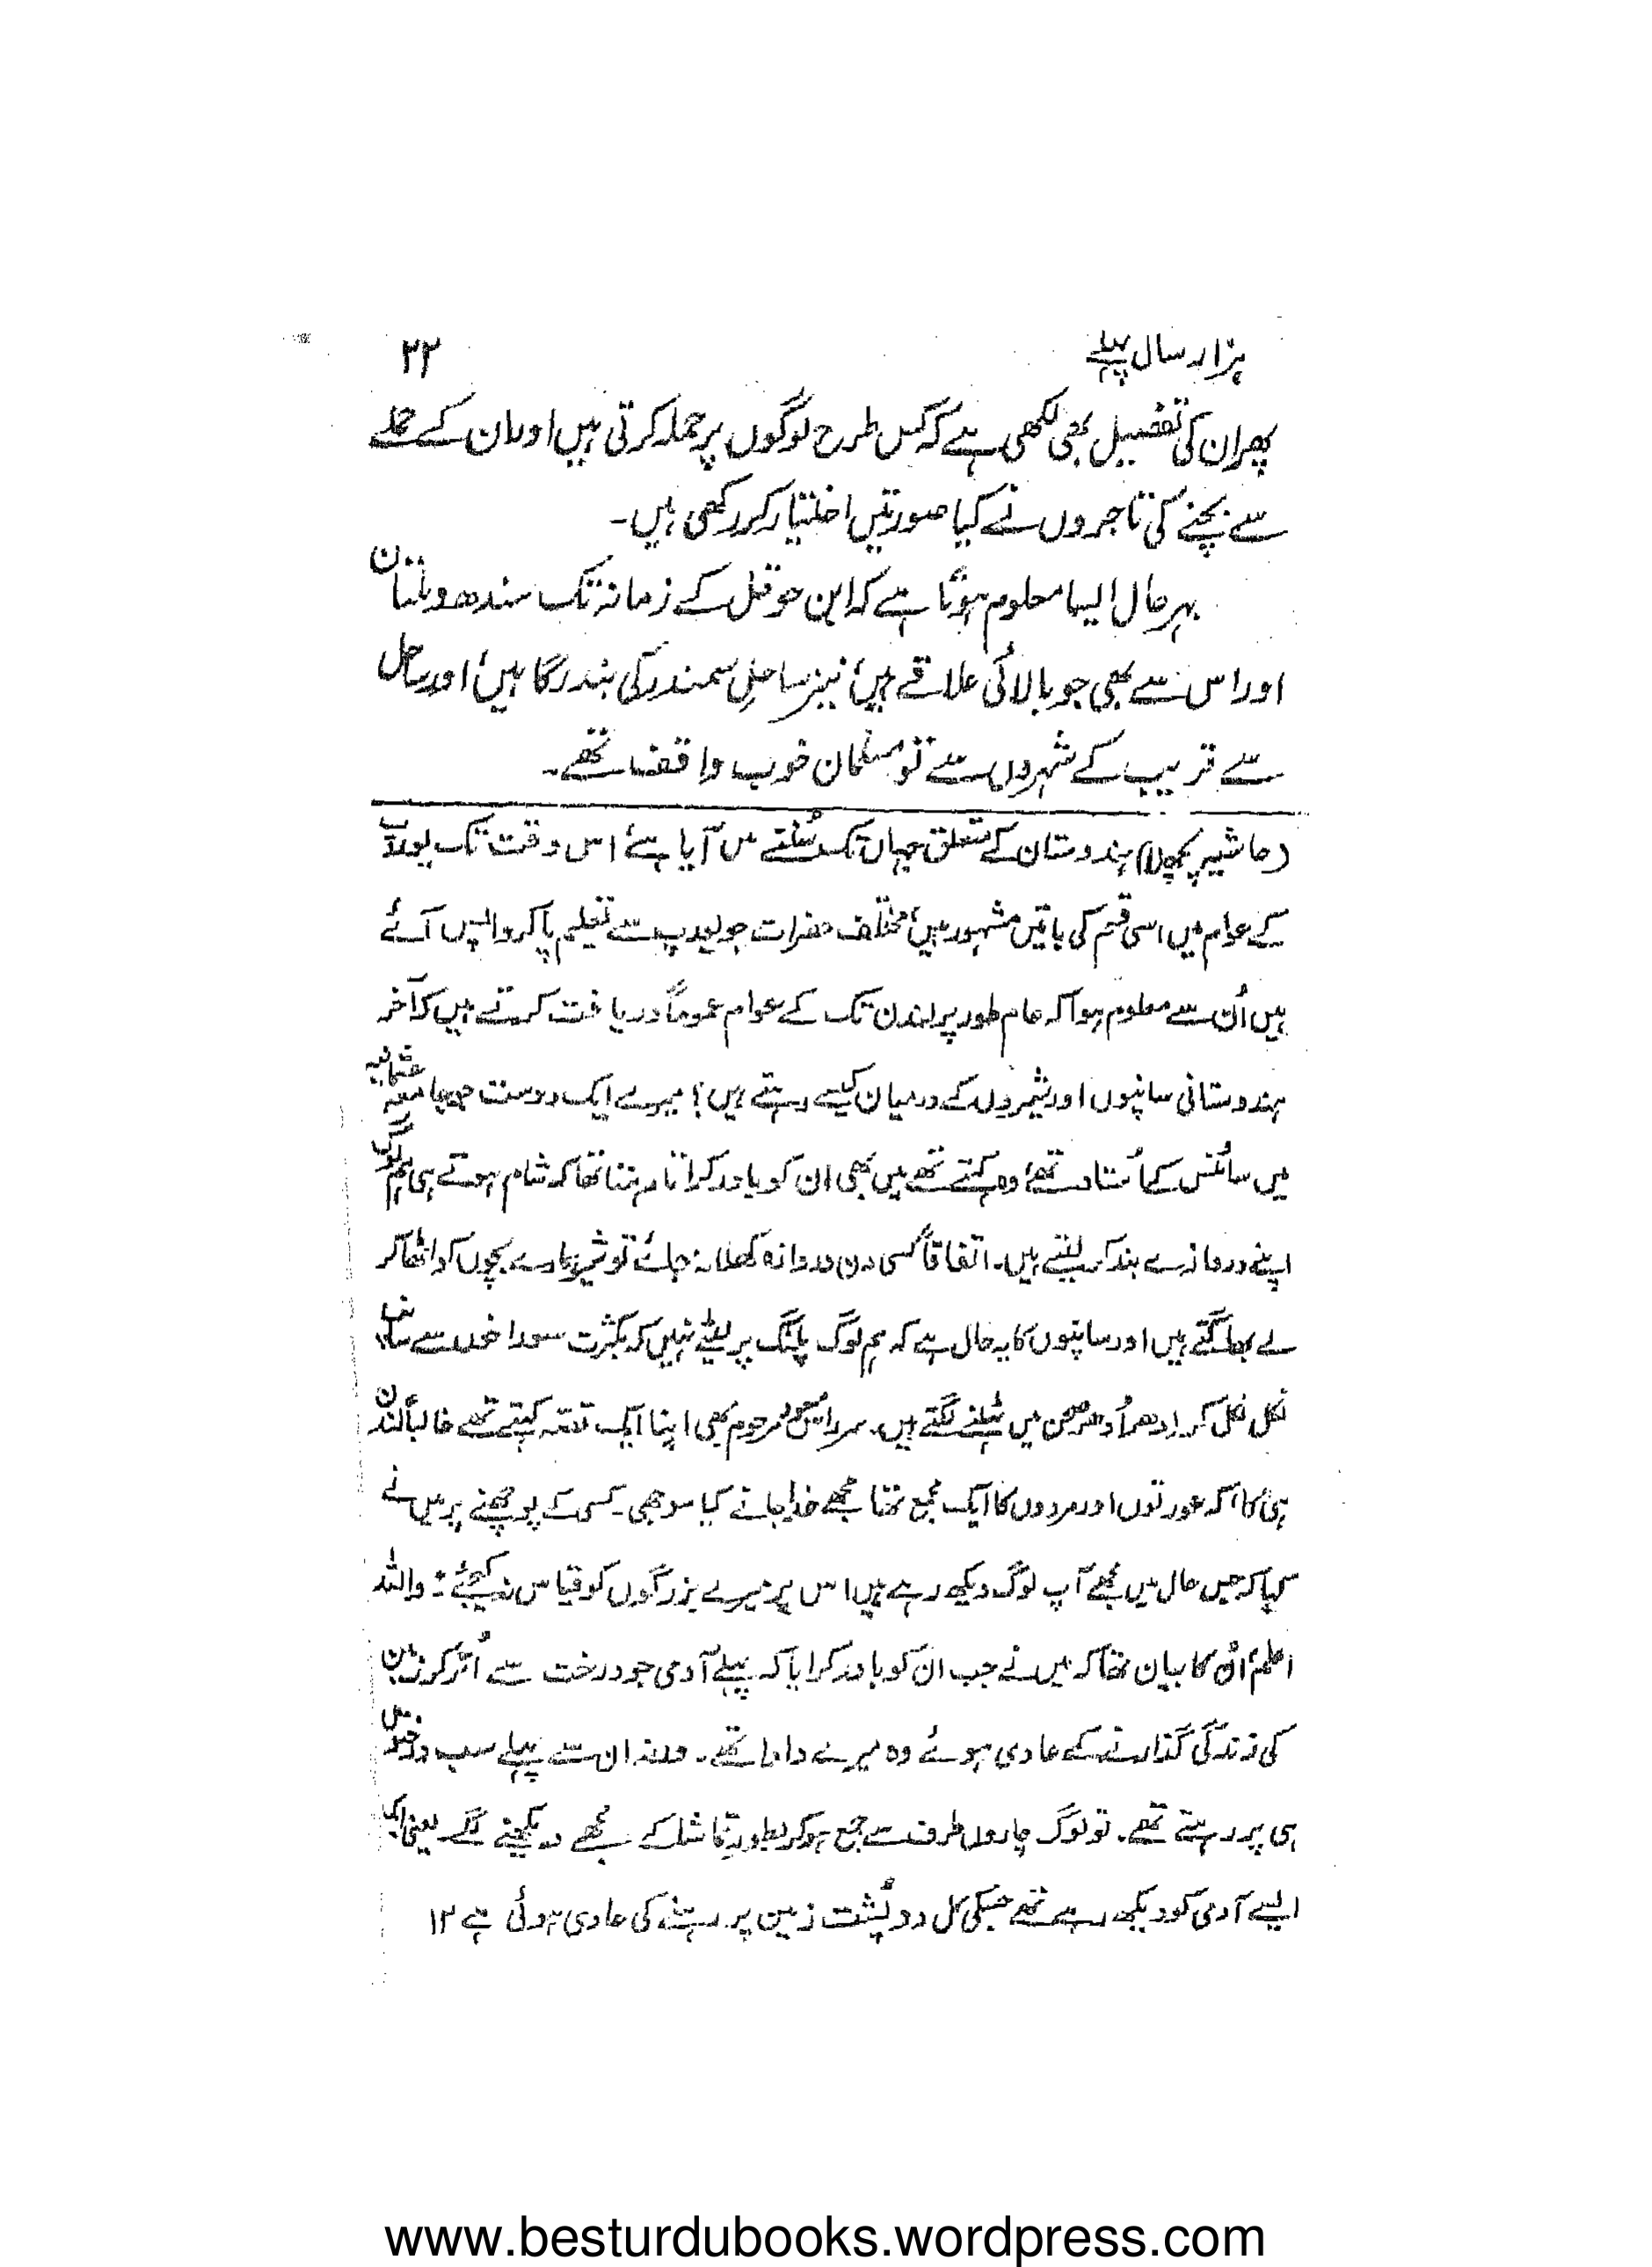 ہزار سال پہلے ۲۲
پھر ان کی تفصیل بھی لکھی ہے کہ کس طرح لوگوں پر حملہ کرتی ہیں اور ان کے حملے
سے بچنے کی تاجروں نے کیا صورتیں اختیار کر رکھی ہیں۔
بہرحال ایسا معلوم ہوتا ہے کہ ابن حوقل کے زمانہ تک سندھ و ملتان
اور اس سے بھی جو بالائی علاقے ہیں، نیز ساحلِ سمندر کی بندرگاہیں، اور ساحل
سے قریب کے شہروں سے تو مسلمان خوب واقف تھے۔
(حاشیہ پچھلا) ہندوستان کے متعلق جہاں تک سُننے میں آیا ہے، اس وقت تک یورپ
کے عوام میں اسی قسم کی باتیں مشہور ہیں، مختلف حضرات جو یورپ سے تعلیم پا کر واپس آئے
ہیں اُن سے معلوم ہوا کہ عام طور پر لندن تک کے عوام عموماً دریافت کرتے ہیں کہ آخر
ہندوستانی سانپوں اور شیروں کے درمیان کیسے رہتے ہیں؟ میرے ایک دوست جو جامعہ عثمانیہ
میں سائنس کے اُستاد تھے، وہ کہتے تھے میں بھی ان کو باور کراتا رہتا تھا کہ شام ہوتے ہی ہم لوگ
اپنے دروازے بند کر لیتے ہیں۔ اتفاقاً کسی دن دروازہ کھلا رہ جائے تو شیر ہمارے بچوں کو اٹھا کر
لے بھاگتے ہیں اور سانپوں کا یہ حال ہے کہ ہم لوگ پلنگ پر لیٹے نہیں کہ بکثرت سوراخوں سے سانپ
نکل نکل کر اِدھر اُدھر صحن میں ٹہلنے لگتے ہیں۔ سر راس مسعود مرحوم بھی اپنا ایک قصہ کہتے تھے غالباً لندن
ہی کا، کہ عورتوں اور مردوں کا ایک مجمع تھا مجھے خدا جانے کیا سوجھی۔ کسی کے پوچھنے پر میں نے
کہا کہ جس حال میں مجھے آپ لوگ دیکھ رہے ہیں اس پر میرے بزرگوں کو قیاس نہ کیجئے : واللہ
اعلم، اُن کا بیان تھا کہ میں نے جب ان کو باور کرایا کہ پہلے آدمی جو درخت سے اُتر کر زمین
کی زندگی گذارنے کے عادی ہوئے وہ میرے دادا تھے۔ ورنہ ان سے پہلے سب درختوں
ہی پر رہتے تھے۔ تو لوگ چاروں طرف سے جمع ہو کر بطور تماشا کے مجھے دیکھنے لگے یعنی ایک
ایسے آدمی کو دیکھ رہے تھے جسکی کل دو پُشت زمین پر رہنے کی عادی ہوئی ہے ۱۲
www.besturdubooks.wordpress.com